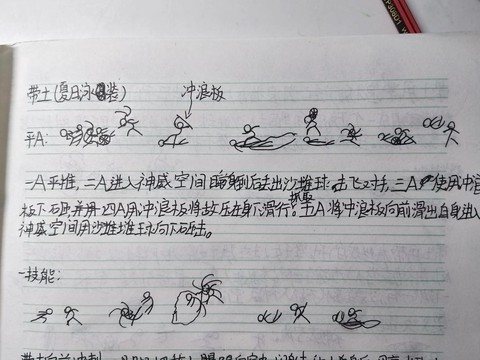 带土(夏日泳装)
冲浪板
平A:
一A平推,二A进入神威空间瞬身到后击出沙堆球.击飞对手,三A使用冲浪
板下砸,并用四A用冲浪板将敌压在身下滑行,五A将冲浪板向前滑出自身进入
神威空间用沙堆堆球向下砸击。
一技能:
带土向前冲刺